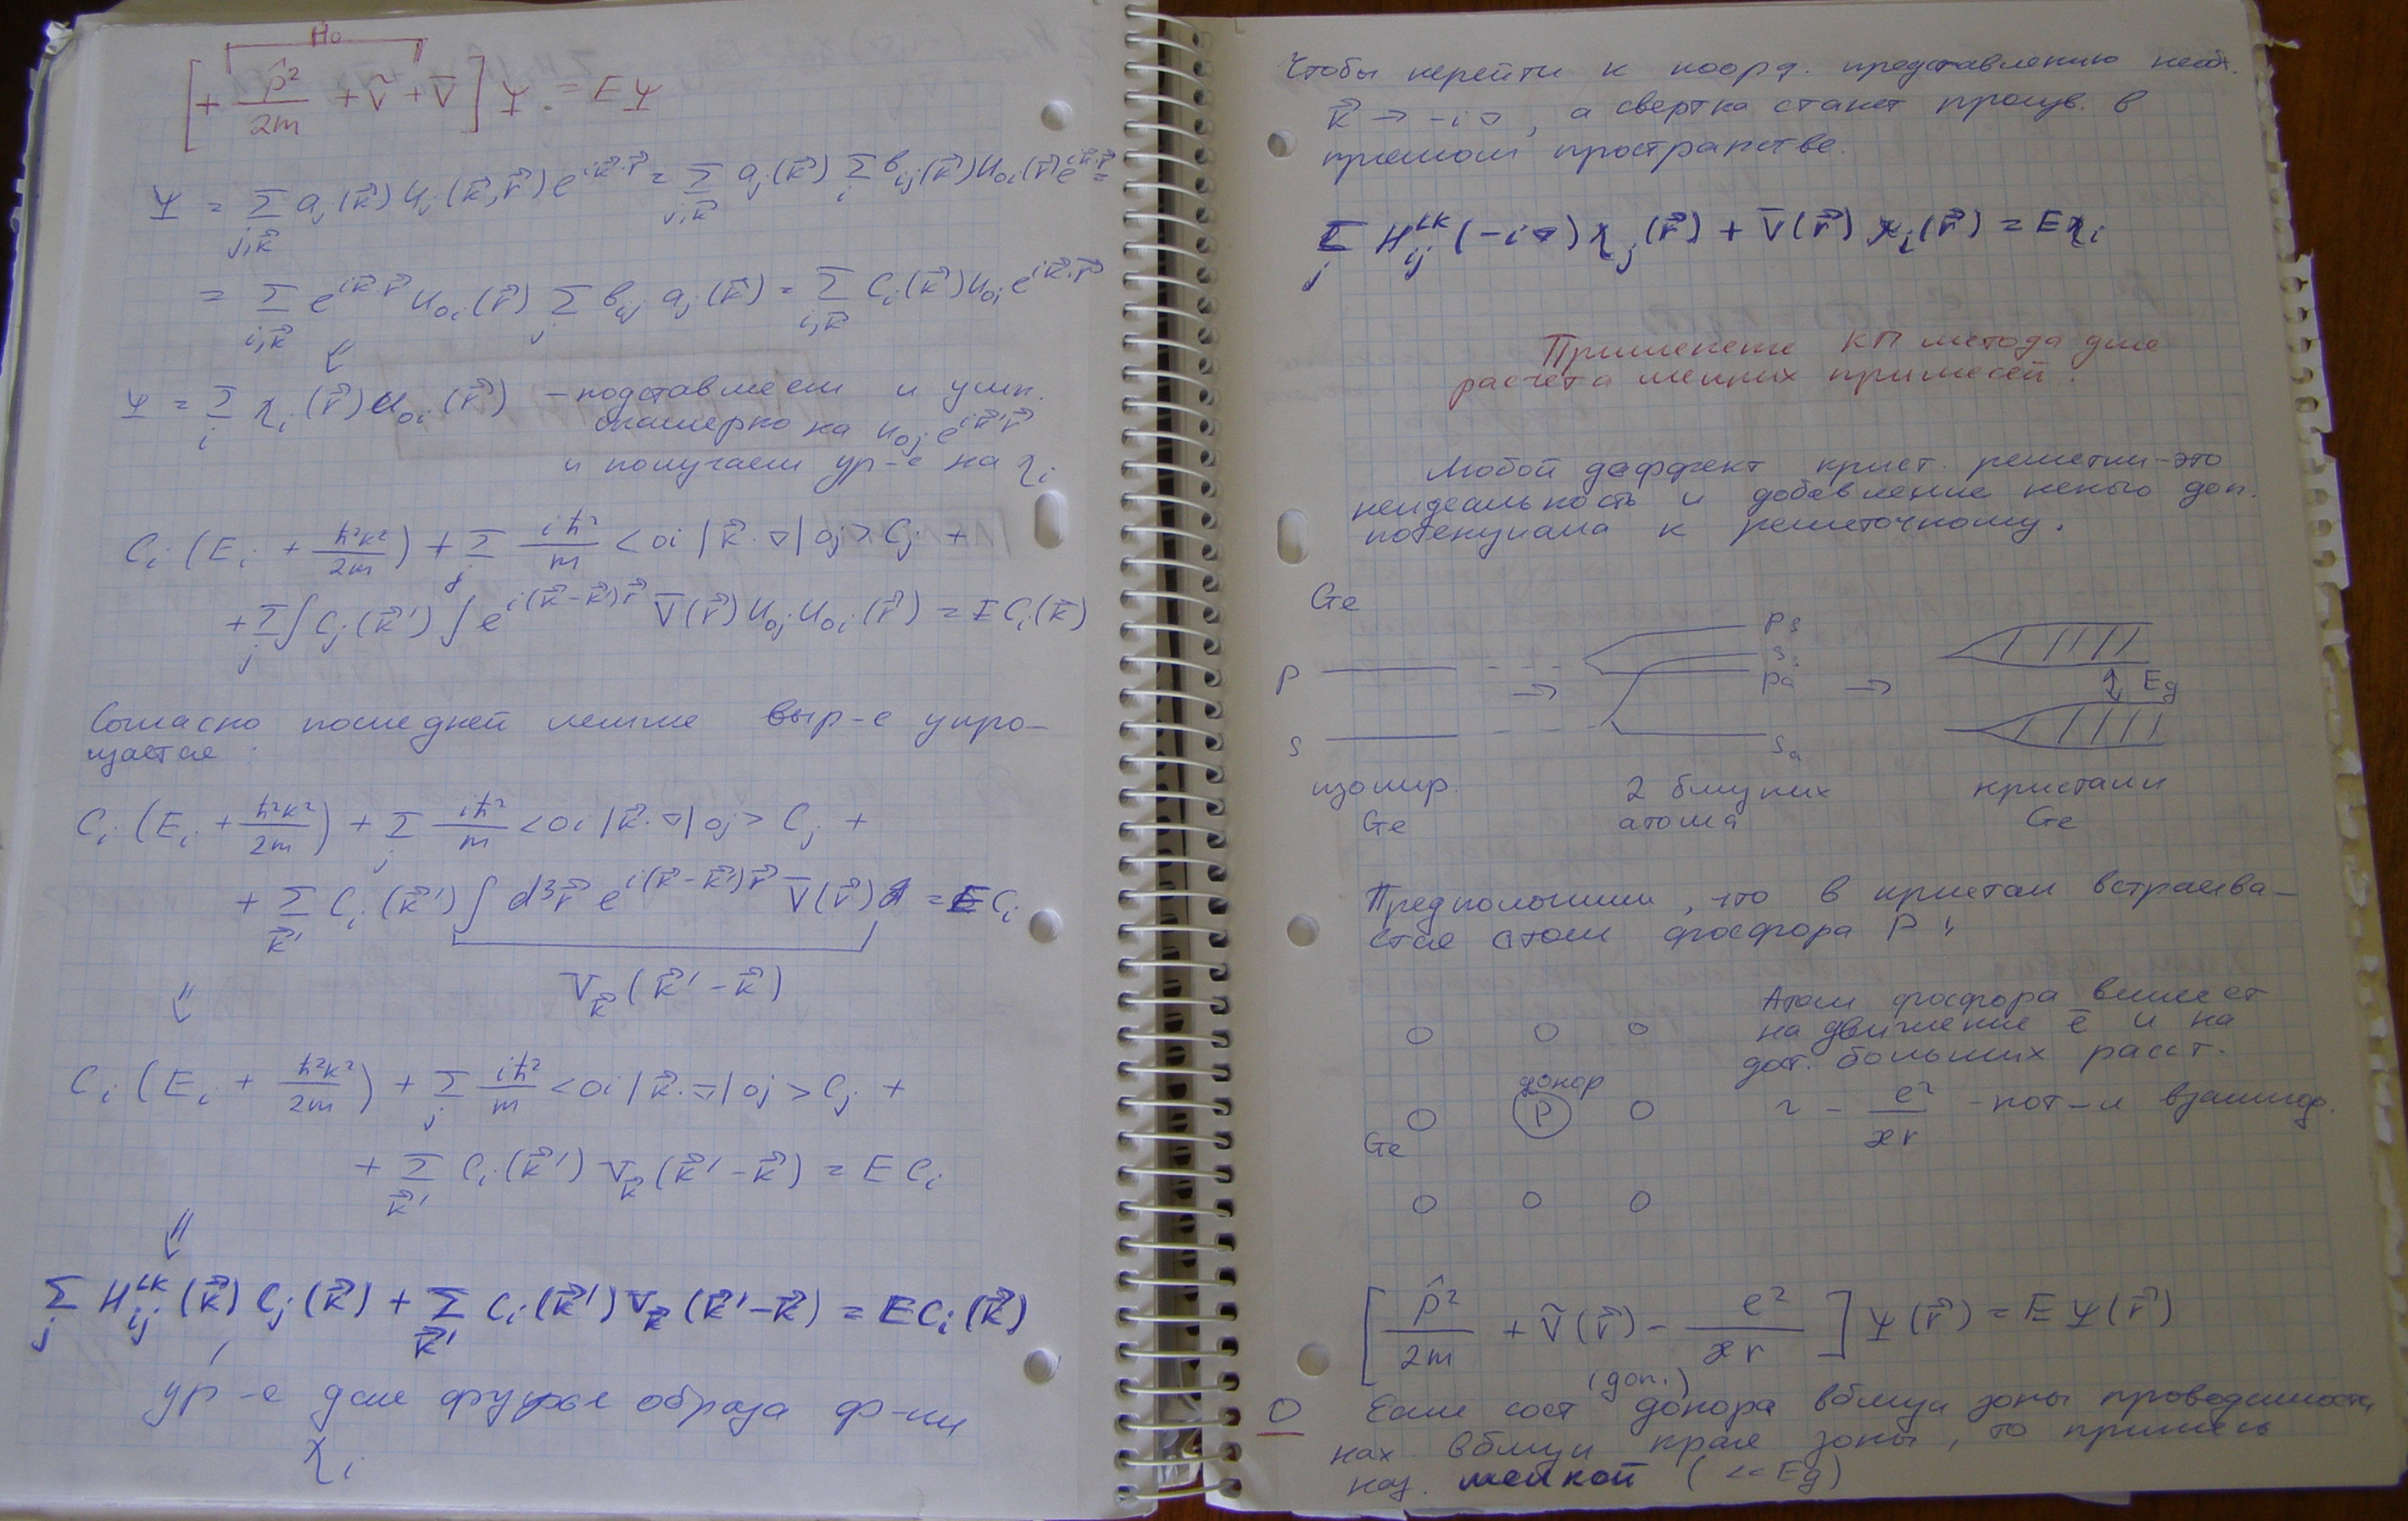 H₀
[+ p̂²/2m + Ṽ + V̄] Ψ = EΨ
Ψ = Σ_{j,k⃗} a_j(k⃗) u_j(k⃗,r⃗) e^{ik⃗·r⃗} = Σ_{j,k⃗} a_j(k⃗) Σ_i b_{ij}(k⃗) u_{0i}(r⃗) e^{ik⃗·r⃗} =
= Σ_{i,k⃗} e^{ik⃗·r⃗} u_{0i}(r⃗) Σ_j b_{ij} a_j(k⃗) = Σ_{i,k⃗} C_i(k⃗) u_{0i} e^{ik⃗·r⃗}
⇓
Ψ = Σ_i χ_i(r⃗) u_{0i}(r⃗) – подставляем и умн.
скалярно на u_{0j} e^{ik⃗'r⃗}
и получаем ур-е на χ_i
C_i (E_i + ħ²k²/2m) + Σ_j iħ²/m <0i|k⃗·∇|0j> C_j +
+ Σ_j ∫ C_j(k⃗') ∫ e^{i(k⃗-k⃗')r⃗} V̄(r⃗) u_{0j} u_{0i}(r⃗) = E C_i(k⃗)
Согласно последней лемме выр-е упро-
щается:
C_i (E_i + ħ²k²/2m) + Σ_j iħ²/m <0i|k⃗·∇|0j> C_j +
+ Σ_{k⃗'} C_i(k⃗') ∫ d³r⃗ e^{i(k⃗-k⃗')r⃗} V̄(r⃗) = E C_i
V_{k⃗}(k⃗'-k⃗)
⇓
C_i (E_i + ħ²k²/2m) + Σ_j iħ²/m <0i|k⃗·∇|0j> C_j +
+ Σ_{k⃗'} C_i(k⃗') V_{k⃗}(k⃗'-k⃗) = E C_i
⇓
Σ_j H_{ij}^{LK}(k⃗) C_j(k⃗) + Σ_{k⃗'} C_i(k⃗') V_{k⃗}(k⃗'-k⃗) = E C_i(k⃗)
ур-е для фурье образа ф-ии
χ_i
Чтобы перейти к коорд. представлению необх.
k⃗ → -i∇, а свертка станет произв. в
прямом пространстве.
Σ_j H_{ij}^{LK}(-i∇) χ_j(r⃗) + V̄(r⃗) χ_i(r⃗) = Eχ_i
Применение КП метода для
расчета мелких примесей.
Любой деффект крист. решетки – это
неидеальность и добавление некого доп.
потенциала к решеточному.
Ge
p → p_s s_s p_a → E_g
s s_a
изолир. 2 близких кристалл
Ge атома Ge
Предположим, что в кристалл встраива-
ется атом фосфора P:
Атом фосфора влияет
на движение e̅ и на
дост. больших расст.
донор
P ~ - e²/ær - пот-л взаимод.
Ge
[p̂²/2m + Ṽ(r⃗) - e²/ær] Ψ(r⃗) = EΨ(r⃗)
(доп.)
О Если сост донора вблизи зоны проводимости
нах. вблизи края зоны, то примесь
наз. мелкой (<<Eg)